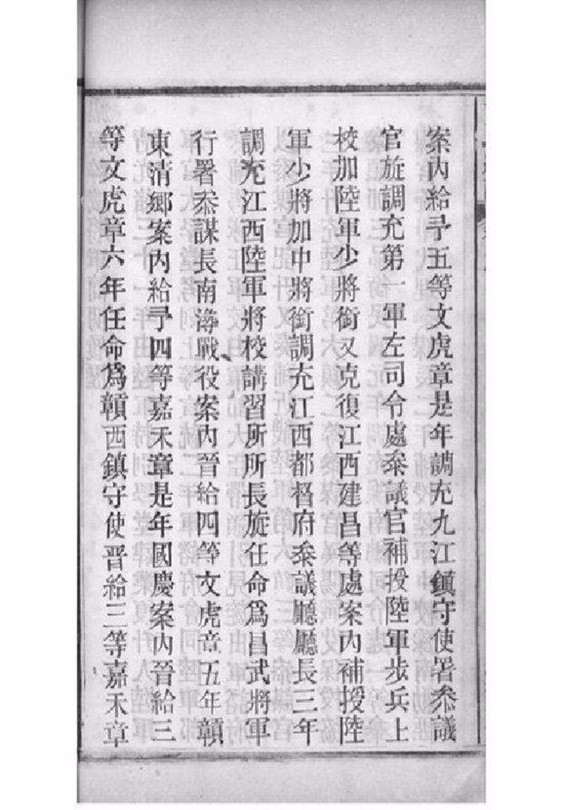 案內給予五等文虎章是年調充九江鎮守使署叅議
官旋調充第一軍左司令處叅議官補授陸軍步兵上
校加陸軍少將銜又克復江西建昌等處案內補授陸
軍少將加中將銜調充江西都督府叅議廳廳長三年
調充江西陸軍將校講習所所長旋任命爲昌武將軍
行署叅謀長南潯戰役案內晉給四等文虎章五年贛
東清鄉案內給予四等嘉禾章是年國慶案內晉給三
等文虎章六年任命爲贛西鎮守使晋給三等嘉禾章